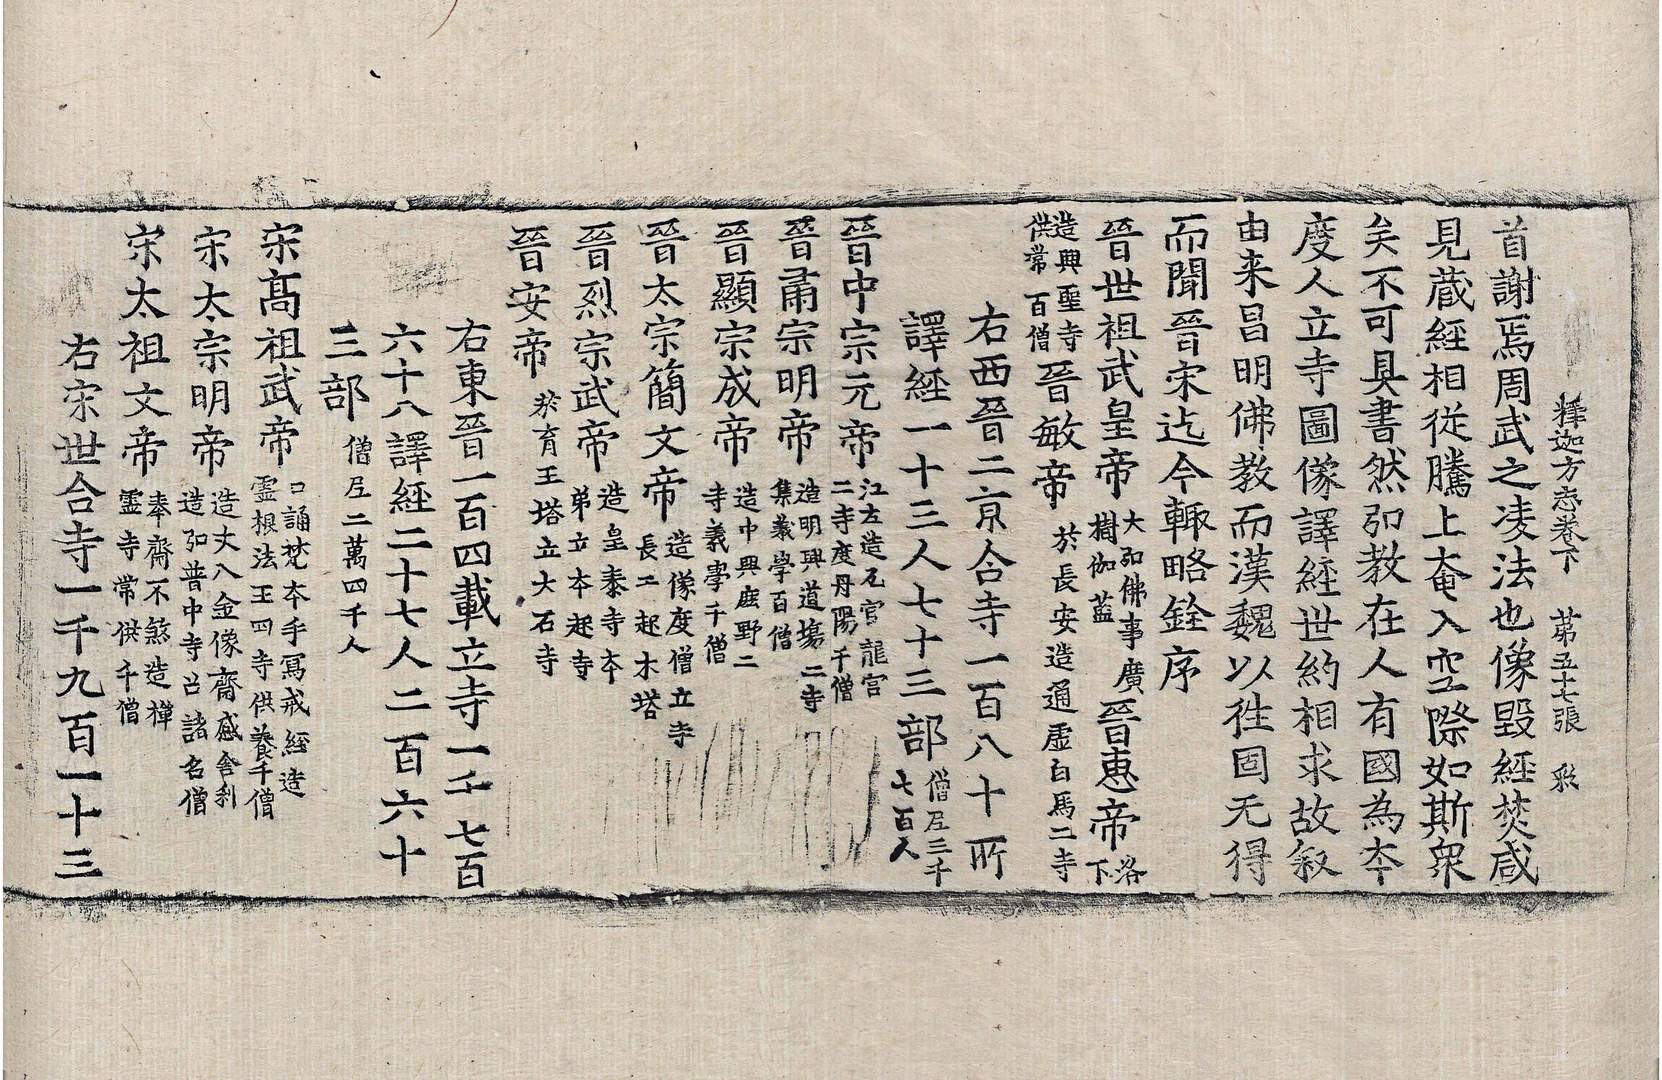 釋迦方志卷下 第五十七張 彩
首謝焉周武之凌法也像毀經焚咸
見蔵經相從騰上奄入空際如斯衆
矣不可具書然弘教在人有國為本
度人立寺圖像譯經世約相求故叙
由来昌明佛教而漢魏以徃固无得
而聞晉宋迄今輙略銓序
晉世祖武皇帝 大弘佛事廣樹伽藍 晉惠帝 洛下
造興聖寺供常百僧 晉敏帝 於長安造通虛白馬二寺
右西晉二京合寺一百八十所
譯經一十三人七十三部 僧尼三千七百人
晉中宗元帝 江左造瓦官龍宮二寺度丹陽千僧
晉肅宗明帝 造明興道場二寺集義學百僧
晉顯宗成帝 造中興鹿野二寺義學千僧
晉太宗簡文帝 造像度僧立寺長工起木塔
晉烈宗武帝 造皇泰寺本弟立本起寺
晉安帝 於育王塔立大石寺
右東晉一百四載立寺一千七百
六十八譯經二十七人二百六十
三部 僧尼二萬四千人
宋髙祖武帝 口誦梵本手寫戒經造靈根法王四寺供養千僧
宋太宗明帝 造丈八金像齋感舍利造弘普中寺召諸名僧
宋太祖文帝 奉齋不煞造禪靈寺常供千僧
右宋世合寺一千九百一十三